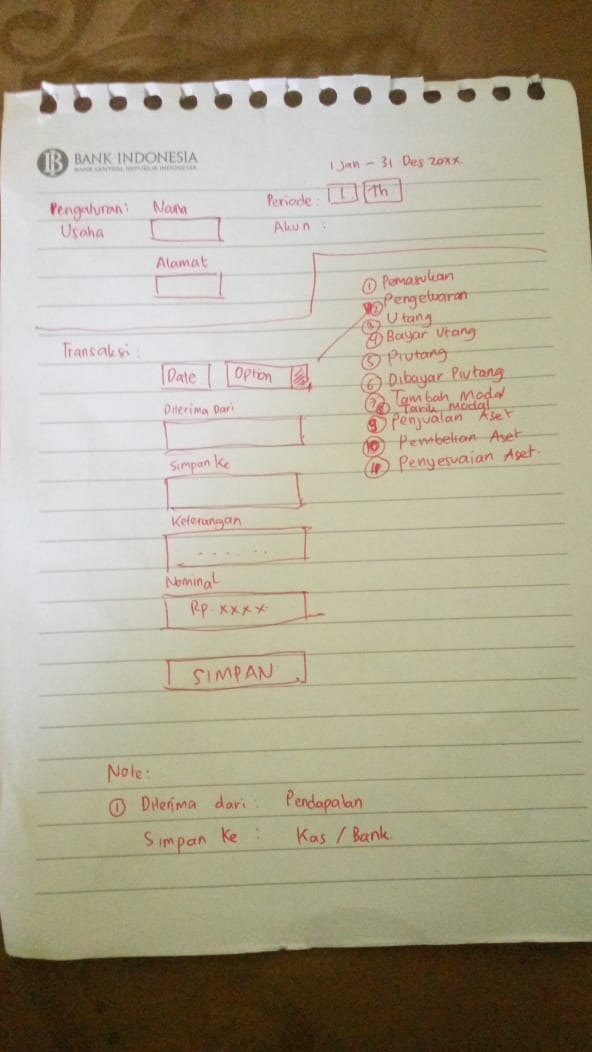 BANK INDONESIA
BANK SENTRAL REPUBLIK INDONESIA
1 Jan - 31 Des 20xx
Pengaturan: Nama Periode: 1 Th
Usaha Akun :
Alamat
Transaksi :
Date Option
① Pemasukan
② Pengeluaran
③ Utang
④ Bayar Utang
⑤ Piutang
⑥ Dibayar Piutang
⑦ Tambah Modal
⑧ Tarik Modal
⑨ Penjualan Aset
⑩ Pembelian Aset
⑪ Penyesuaian Aset.
Diterima Dari
Simpan Ke
Keterangan
. . . . . .
Nominal
Rp. xxxx.
SIMPAN
Note:
① Diterima dari : Pendapatan
Simpan Ke : Kas / Bank.